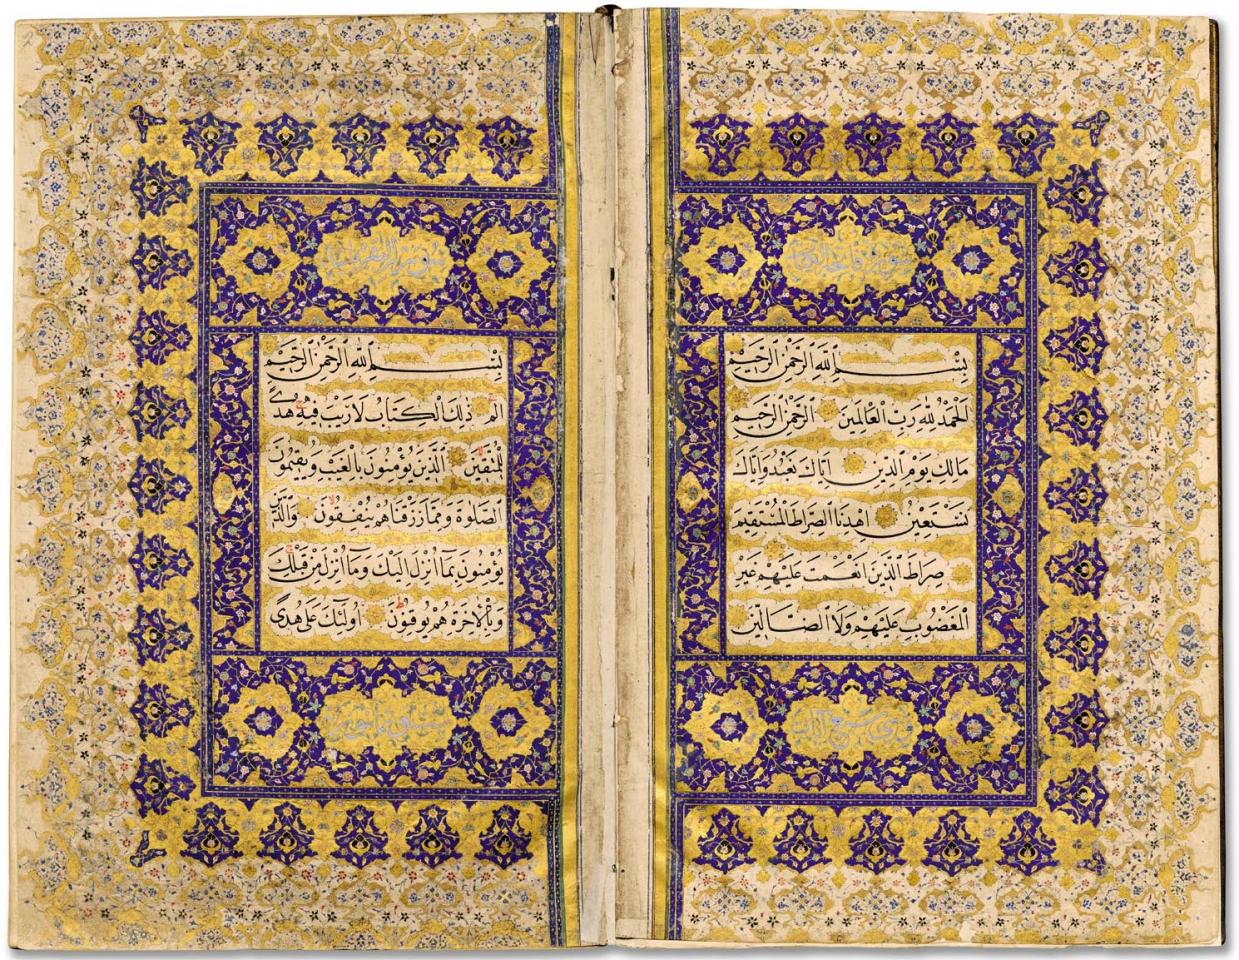 سورة فاتحة الكتاب
بِسْمِ اللهِ الرَّحْمٰنِ الرَّحِيْمِ
اَلْحَمْدُ لِلّٰهِ رَبِّ الْعَالَمِيْنَ الرَّحْمٰنِ الرَّحِيْمِ
مَالِكِ يَوْمِ الدِّيْنِ اِيَّاكَ نَعْبُدُ وَاِيَّاكَ
نَسْتَعِيْنُ اِهْدِنَا الصِّرَاطَ الْمُسْتَقِيْمَ
صِرَاطَ الَّذِيْنَ اَنْعَمْتَ عَلَيْهِمْ غَيْرِ
الْمَغْضُوْبِ عَلَيْهِمْ وَلَا الضَّالِّيْنَ
وهي سبع آيات
سورة البقرة
بِسْمِ اللهِ الرَّحْمٰنِ الرَّحِيْمِ
الم ذٰلِكَ الْكِتَابُ لَا رَيْبَ فِيْهِ هُدًى
لِلْمُتَّقِيْنَ اَلَّذِيْنَ يُؤْمِنُوْنَ بِالْغَيْبِ وَيُقِيْمُوْنَ
الصَّلٰوةَ وَمِمَّا رَزَقْنَاهُمْ يُنْفِقُوْنَ وَالَّذِيْنَ
يُؤْمِنُوْنَ بِمَا اُنْزِلَ اِلَيْكَ وَمَا اُنْزِلَ مِنْ قَبْلِكَ
وَبِالْاٰخِرَةِ هُمْ يُوْقِنُوْنَ اُولٰئِكَ عَلٰى هُدًى